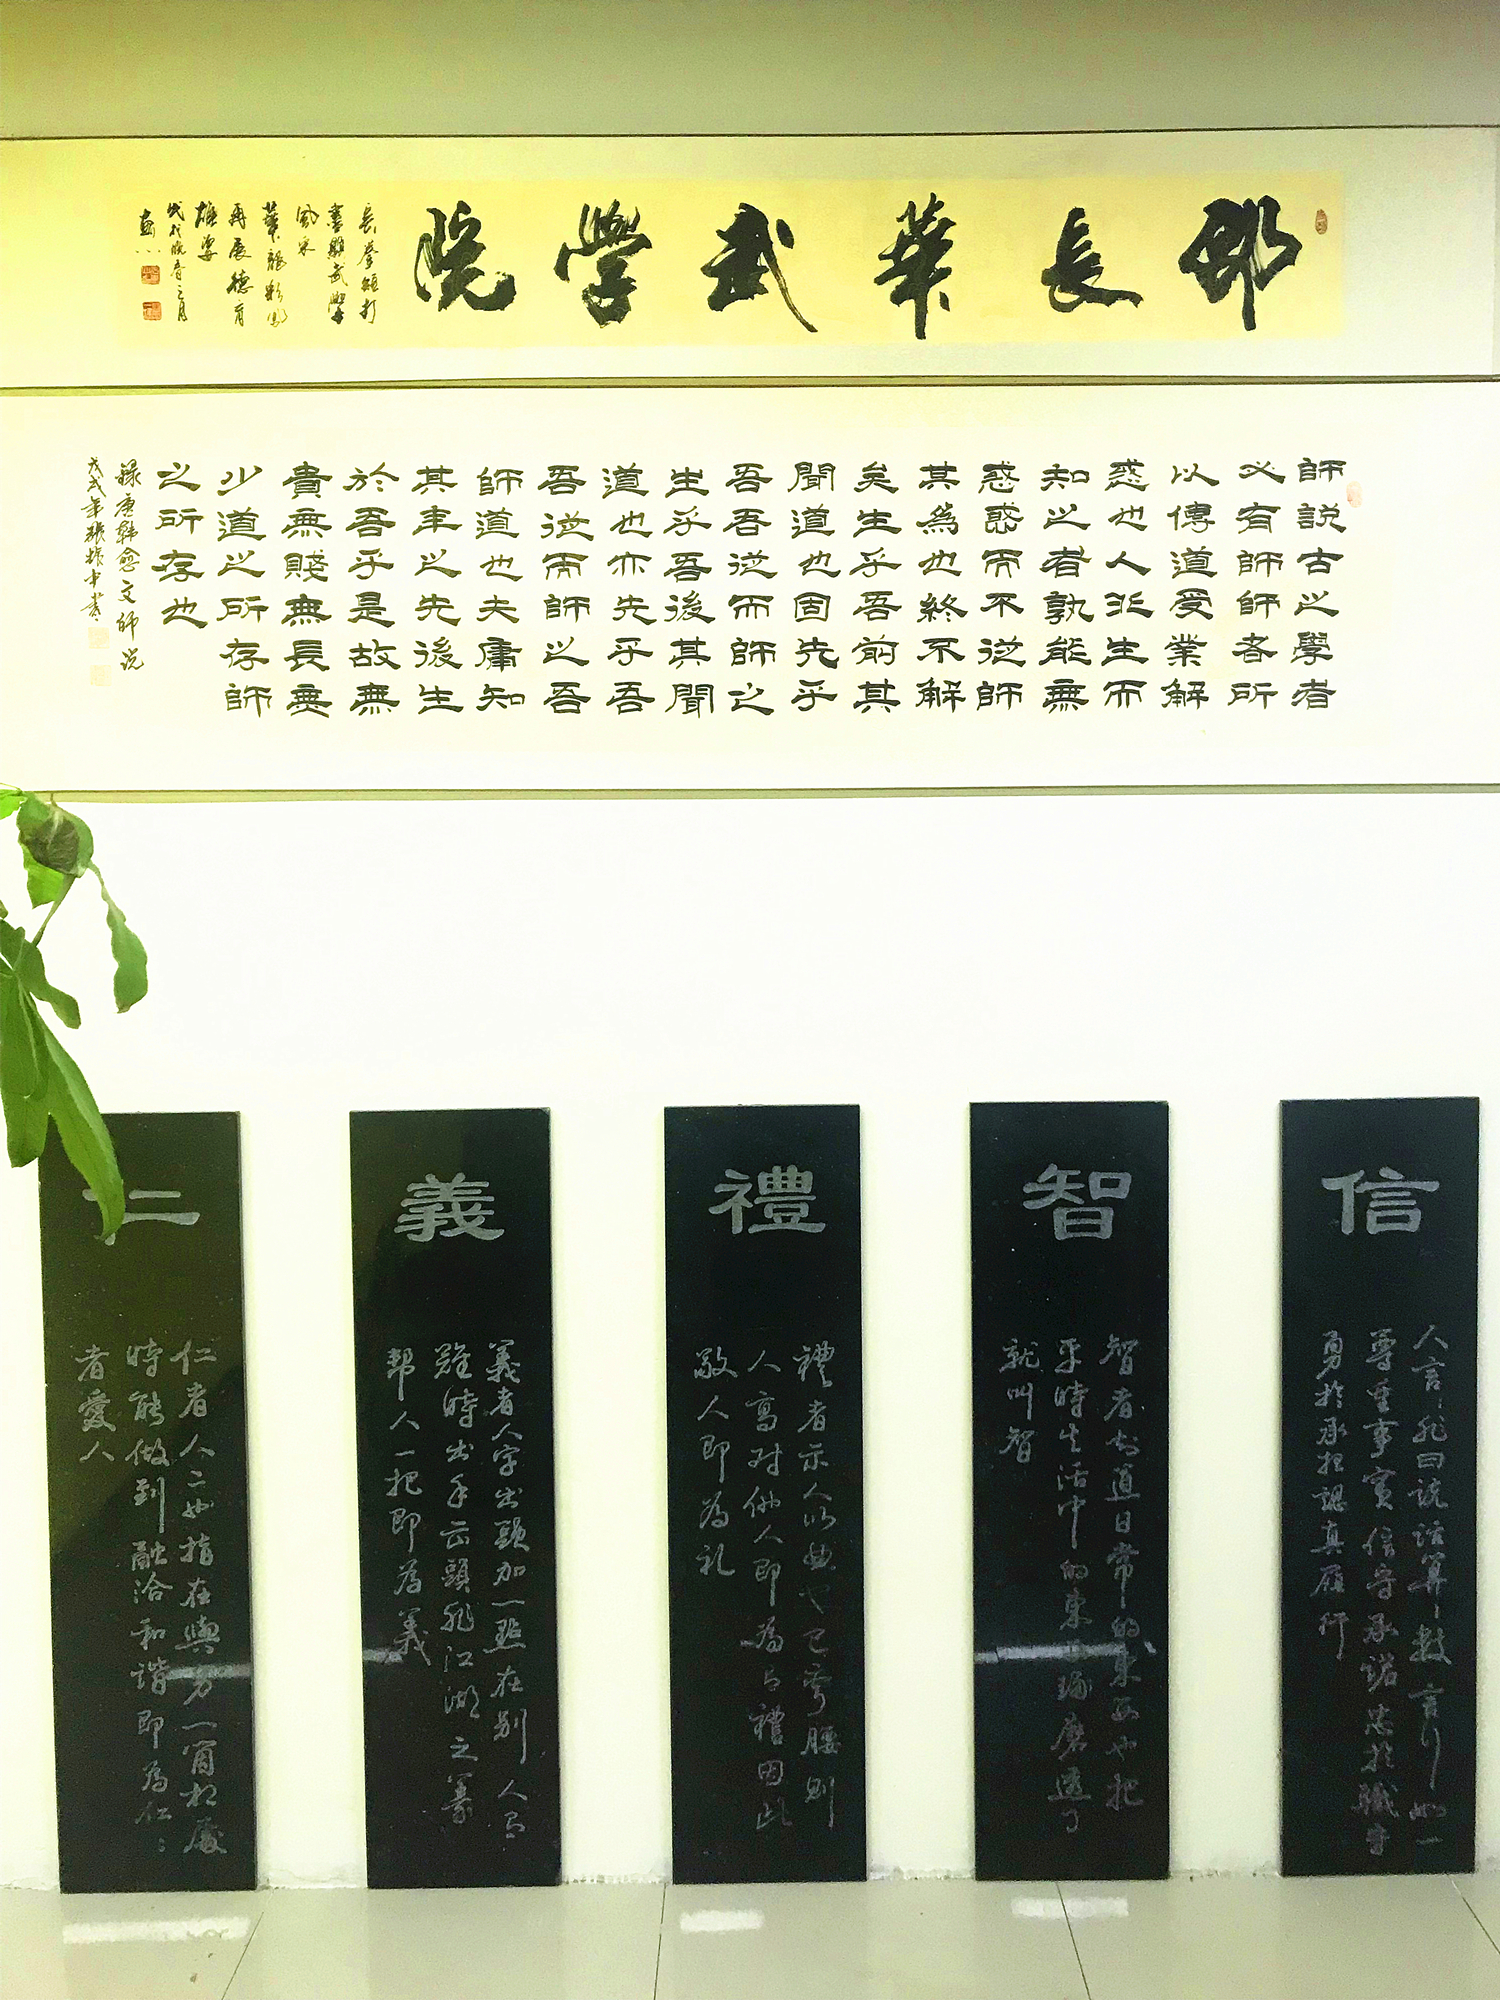 邵長華武學院
長拳短打
書雕武學
風采
華龍彩鳳
再展德育
雄姿
戊戌晚春之月
師說古之學者
必有師師者所
以傳道受業解
惑也人非生而
知之者孰能無
惑惑而不從師
其為也終不解
矣生乎吾前其
聞道也固先乎
吾吾從而師之
生乎吾後其聞
道也亦先乎吾
吾從而師之吾
師道也夫庸知
其年之先後生
於吾乎是故無
貴無賤無長無
少道之所存師
之所存也
錄唐韓愈文師說
戊戌年張振中書
信
人言非曰說話算數言行如一
尊重事實信守承諾忠於職守
勇於承担認真履行
智
智者知道日常的東西也把
平時生活中的東西琢磨透了
就叫智
禮
禮者示人以曲也已彎腰則
人高对他人即為占禮因此
敬人即為礼
義
義者人字出頭加一點在别人有
難時出手出頭非江湖之義
帮人一把即為義
仁
仁者人二也指在與另一個相處
時能做到融洽和諧即為仁仁
者愛人